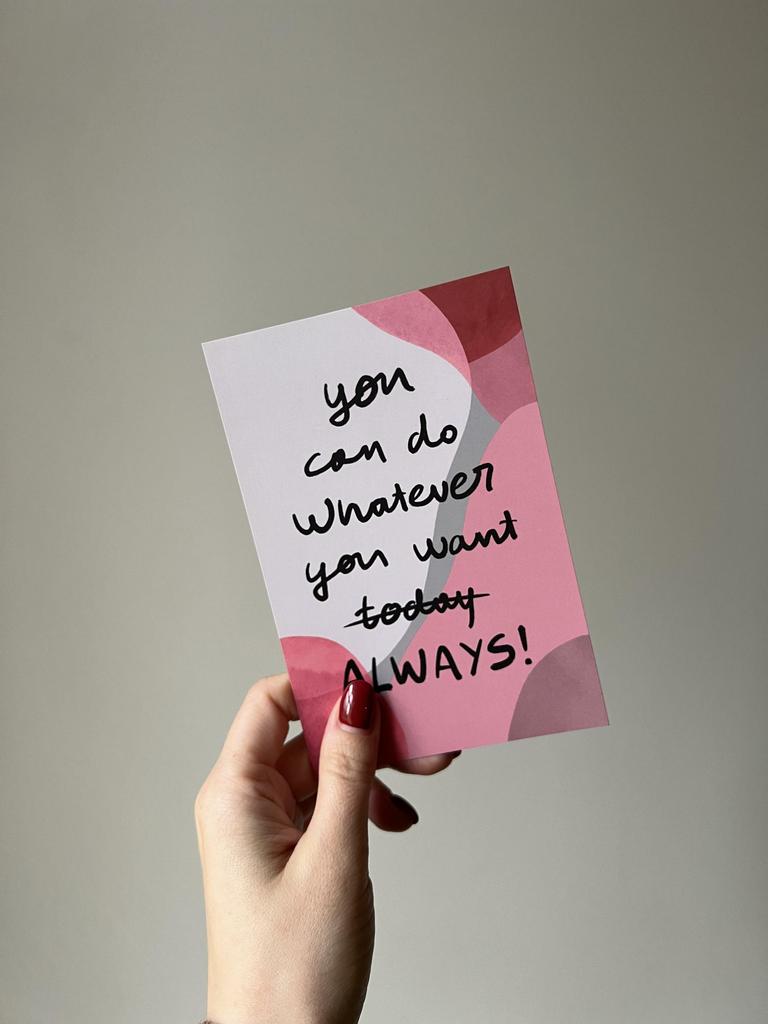 you
can do
whatever
you want
today
ALWAYS!